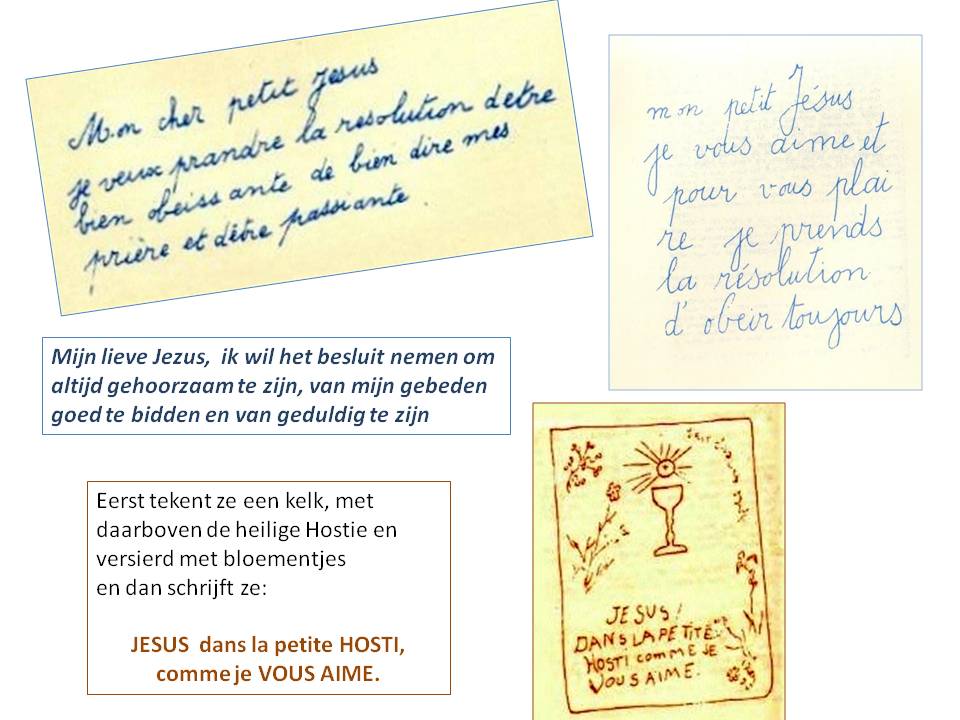 Mon cher petit Jesus
je veux prandre la resolution dêtre
bien obeissante de bien dire mes
prière et dêtre passiante.
mon petit Jésus
je vous aime et
pour vous plai
re je prends
la résolution
d'obeir toujours
Mijn lieve Jezus, ik wil het besluit nemen om
altijd gehoorzaam te zijn, van mijn gebeden
goed te bidden en van geduldig te zijn
Eerst tekent ze een kelk, met
daarboven de heilige Hostie en
versierd met bloementjes
en dan schrijft ze:
JESUS dans la petite HOSTI,
comme je VOUS AIME.
JESUS!
DANS LA PETITE
HOSTI comme JE
VOUS AIME.